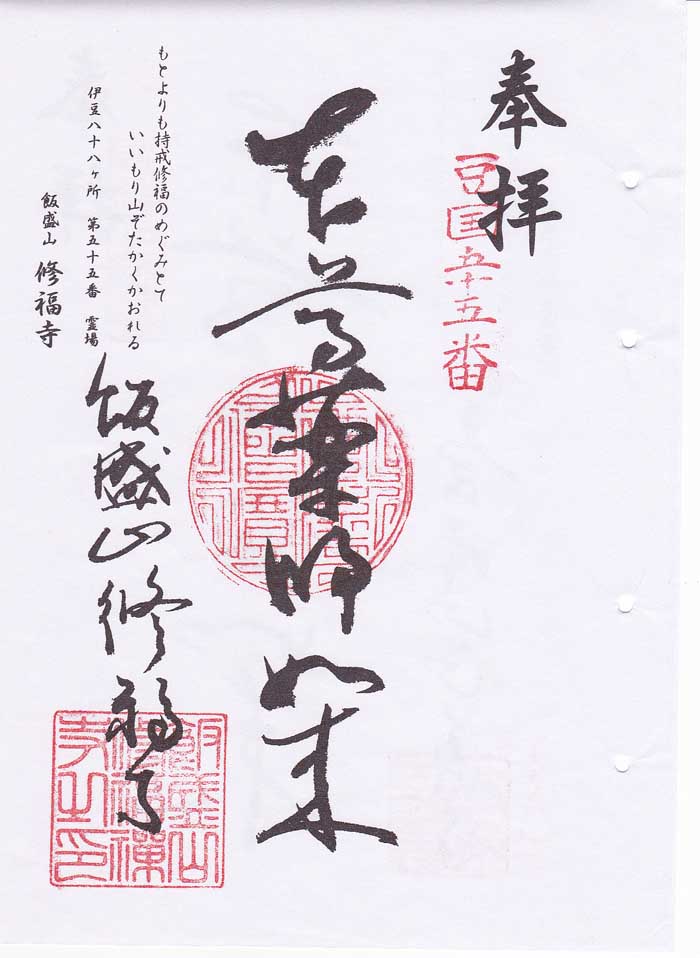 奉拝
豆国五十五番
本尊薬師如来
もとよりも持戒修福のめぐみとて
いいもり山ぞたかくかおれる
伊豆八十八ヶ所 第五十五番 霊場
飯盛山 修福寺
飯盛山修福寺
飯盛山修福禅寺之印